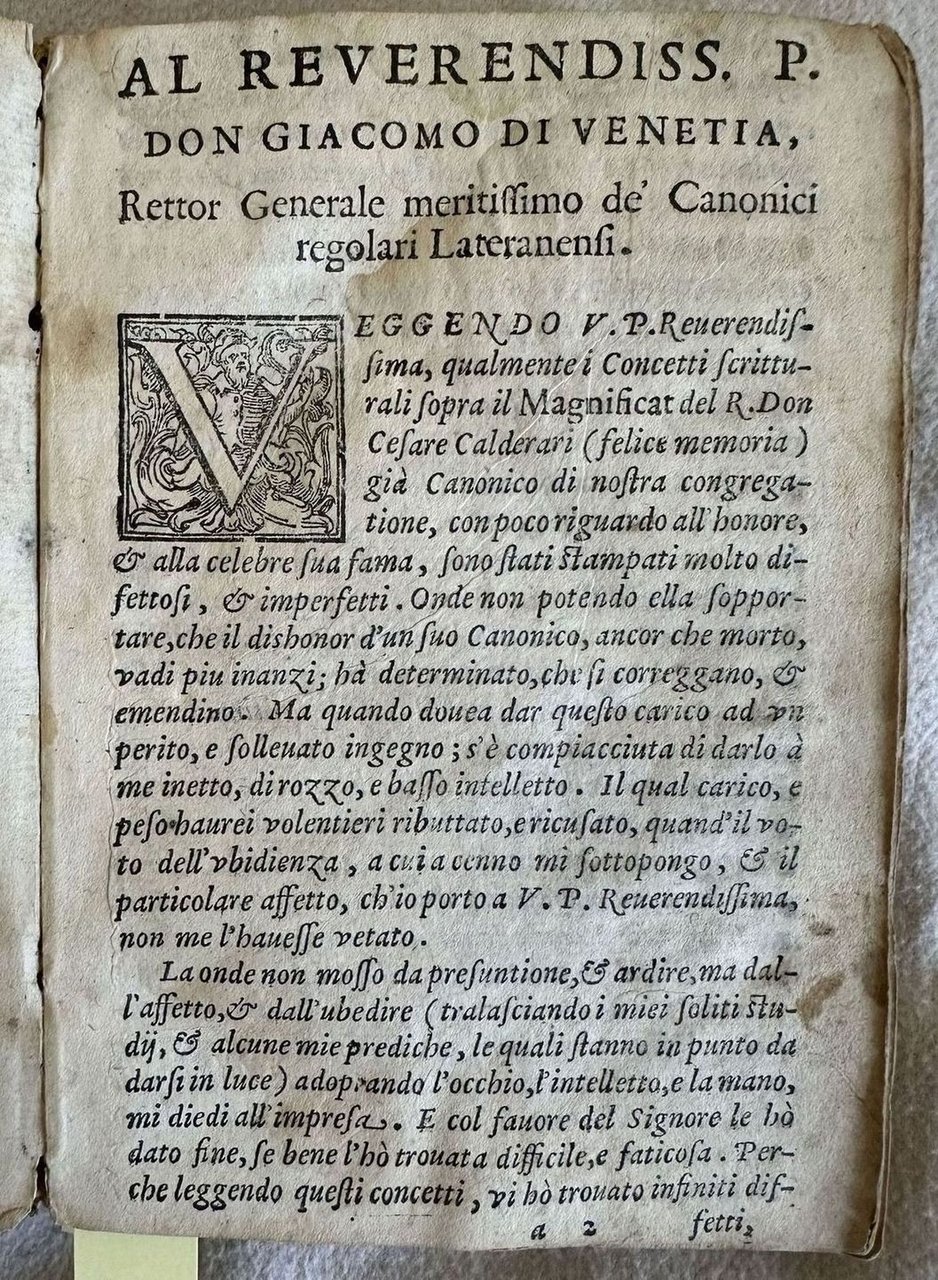 AL REVERENDISS. P.
DON GIACOMO DI VENETIA,
Rettor Generale meritiſſimo de' Canonici
regolari Lateranenſi.
VEGGENDO V.P.Reuerendiſ-
ſima, qualmente i Concetti ſcrittu-
rali ſopra il Magnificat del R.Don
Ceſare Calderari (felice memoria)
già Canonico di noſtra congrega-
tione, con poco riguardo all'honore,
& alla celebre ſua fama, ſono ſtati ſtampati molto di-
fettoſi, & imperfetti. Onde non potendo ella ſoppor-
tare,che il dishonor d'un ſuo Canonico, ancor che morto,
vadi piu inanzi; hà determinato,che ſi correggano, &
emendino. Ma quando douea dar queſto carico ad vn
perito, e ſolleuato ingegno; s'è compiacciuta di darlo à
me inetto, di rozzo, e baſſo intelletto. Il qual carico, e
peſo haurei volentieri ributtato,e ricuſato, quand'il vo-
to dell'vbidienza, a cui a cenno mi ſottopongo, & il
particolare affetto, ch'io porto a V.P. Reuerendiſſima,
non me l'haueſſe vetato.
La onde non moſſo da preſuntione,& ardire,ma dal-
l'affetto,& dall'ubedire (tralaſciando i miei ſoliti ſtu-
dij, & alcune mie prediche, le quali ſtanno in punto da
darſi in luce) adoprando l'occhio,l'intelletto,e la mano,
mi diedi all'impreſa. E col fauore del Signore le hò
dato fine, ſe bene l'hò trouata difficile,e faticoſa. Per-
che leggendo queſti concetti, vi hò trouato infiniti dif-
a 2 fetti,